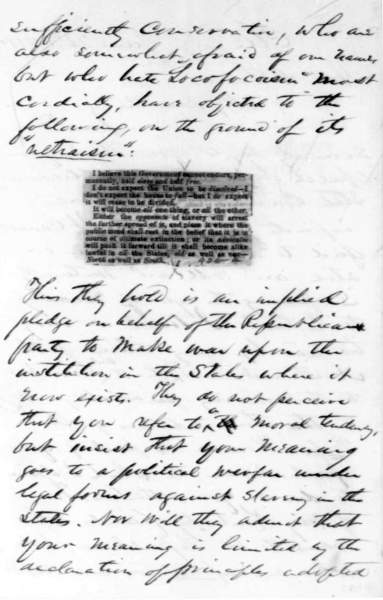 sufficiently conservative, who are
also somewhat afraid of our name
but who hate Locofocoism most
cordially, have objected to the
following, on the ground of its
"ultraism":
I believe this Government cannot endure, per-
manently, half slave and half free.
I do not expect the Union to be dissolved—I
don't expect the house to fall—but I do expect
it will cease to be divided.
It will become all one thing, or all the other.
Either the opponents of slavery will arrest
the further spread of it, and place it where the
public mind shall rest in the belief that it is in
course of ultimate extinction; or its advocates
will push it forward till it shall become alike
lawful in all the States, old as well as new—
North as well as South.
This they hold is an implied
pledge on behalf of the Republican
party to make war upon the
institution in the States where it
now exists. They do not perceive
that you refer to a moral tendency,
but insist that your meaning
goes to a political warfare under
legal forms against slavery in the
States. Nor will they admit that
your meaning is limited by the
declaration of principles adopted